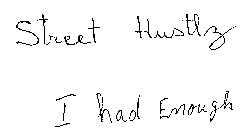 Street Hustlz
I had Enough